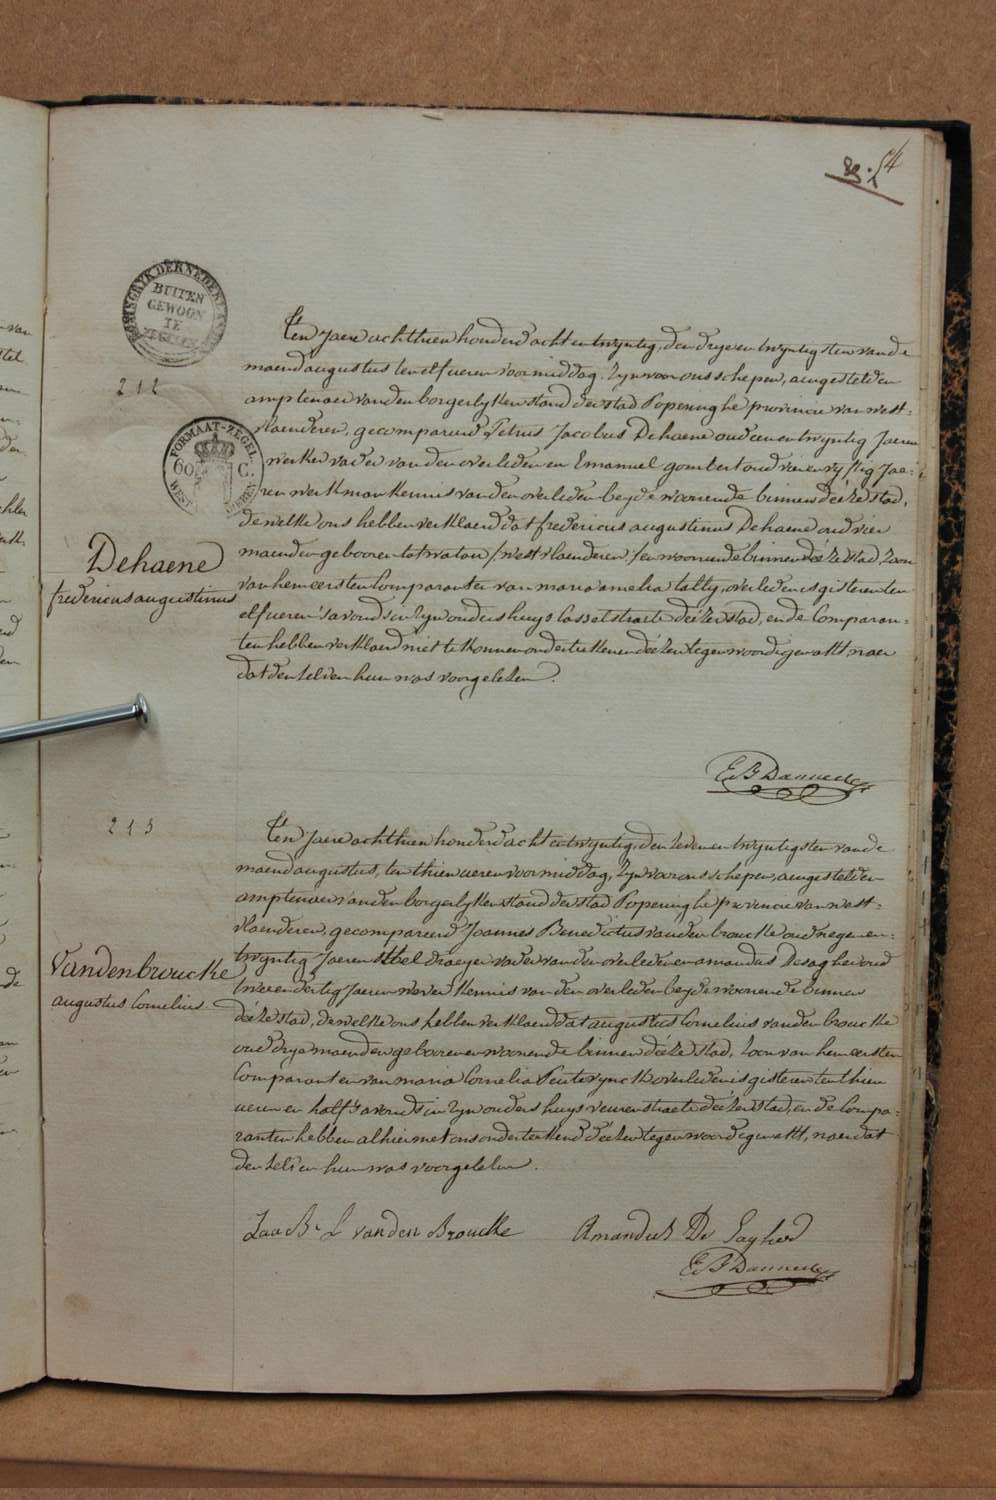 54
KONINGRYK DER NEDERLANDEN
BUITEN
GEWOON
TE
ZEGELEN
212
FORMAAT-ZEGEL
60 C.
WEST
Dehaene
fredericus augustinus
Ten Jaere achthien honderd acht en twyntig, den dryen twyntigsten van de
maend augustus ten elf ueren voormiddag, Zyn voor ons schepen, aengestelden
amptenaer van den borgerlyken stand der stad Poperinghe provincie van west-
vlaenderen, gecompareerd Petrus Jacobus Dehaene oud een en twyntig Jaeren
werker vader van den overleden en Emanuel Gombert oud vier en vyftig Jae-
ren werkman kennis van den overleden beyde woonende binnen deéze stad,
dewelke ons hebben verklaerd dat fredericus augustinus Dehaene oud vier
maenden geboren tot watou /westvlaenderen/ en woonende binnen deéze stad, Zoon
van hem eersten Comparant en van maria amelia talty, overleden is gisteren ten
elf ueren 's avonds in Zyn ouders huys Casselstraete deézer stad, en de Comparan-
ten hebben verklaerd niet te konnen onderteekenen deézen tegenwoordigen akt, naer
dat den zelven hun was voorgelezen.
E B Danneel
213
Vandenbroucke
augustus Cornelius
Ten Jaere achthien honderd acht en twyntig, den zeven en twyntigsten van de
maend augustus, ten thien ueren voormiddag, Zyn voor ons schepen, aengestelden
amptenaer van den borgerlyken stand der stad Poperinghe provincie van west-
vlaenderen, gecompareerd Joannes Benedictus vanden broucke oud negen en
twyntig Jaeren draeyer vader van den overleden en amandus Desagher oud
twee en dertig Jaeren wever kennis van den overleden beyde woonende binnen
deéze stad, dewelke ons hebben verklaerd dat augustus Cornelius vanden broucke
oud drye maenden geboren en woonende binnen deéze stad, Zoon van hem eersten
Comparant en van maria Cornelia Peuterynck overleden is gisteren ten thien
ueren en half 's avonds in Zyn ouders huys veurenstraete deézer stad, en de Compa-
ranten hebben alhier met ons onderteekend deézen tegenwoordigen akt, naer dat
den zelven hun was voorgelezen.
vanden Broucke Amandus De Sagher
E B Danneel